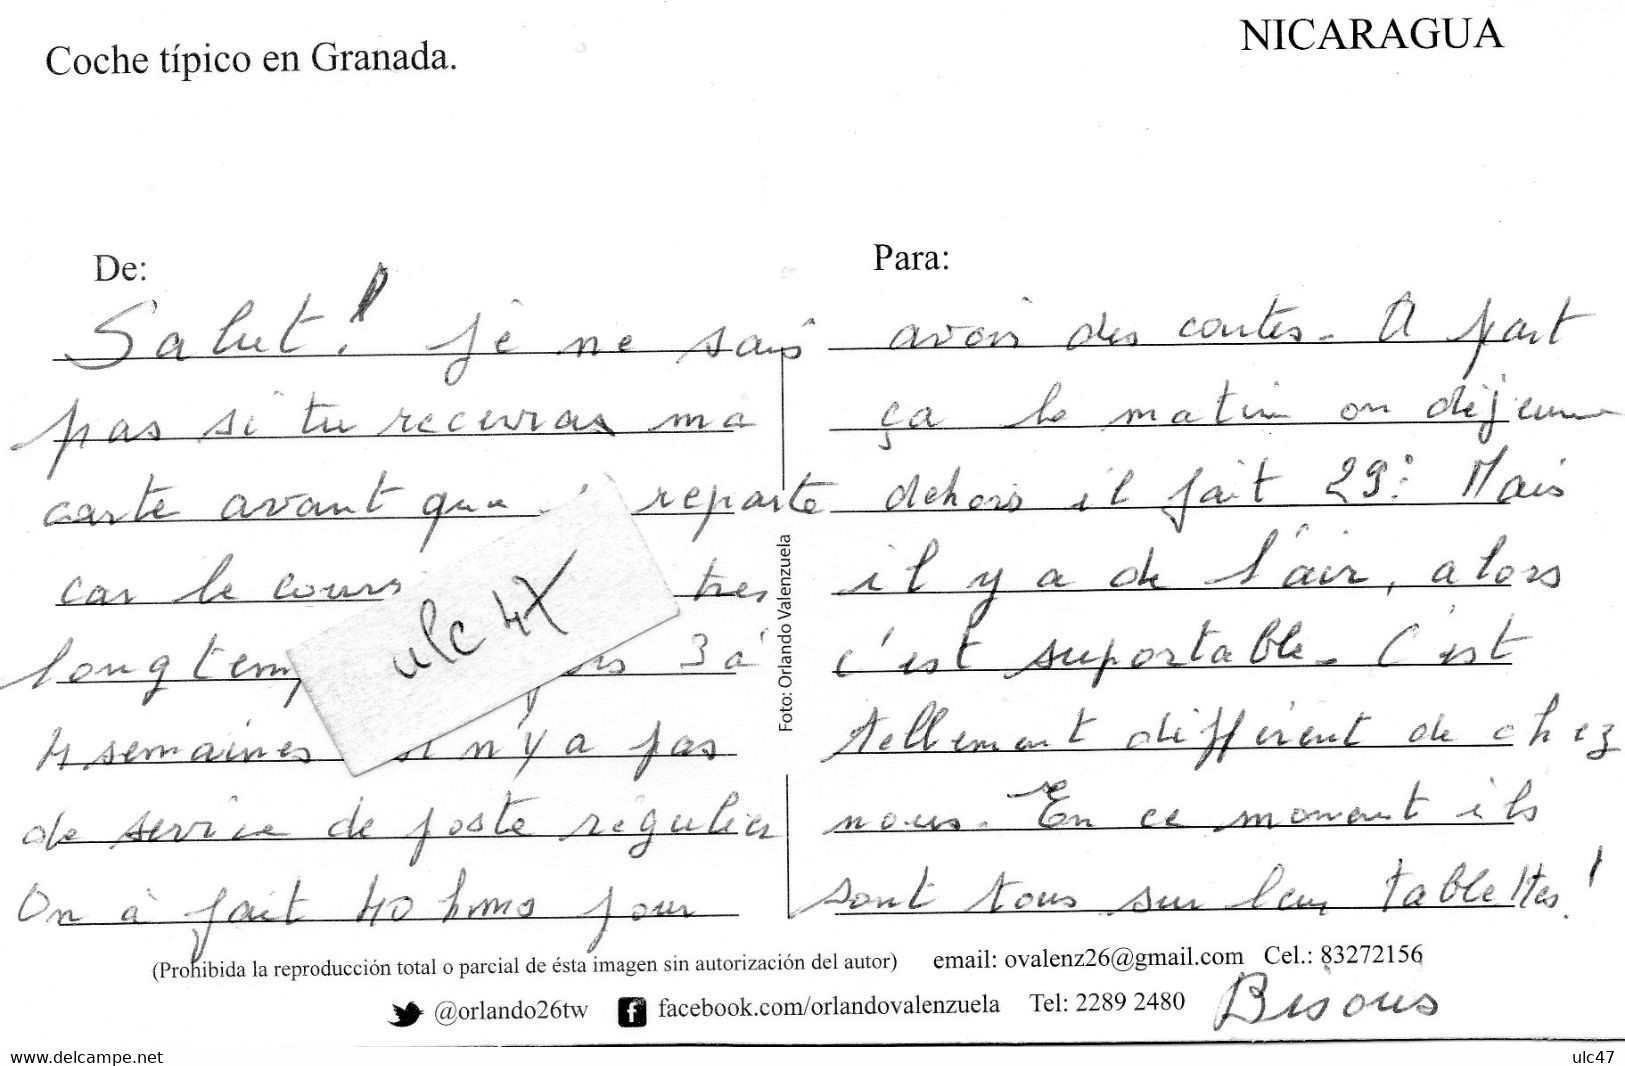 Coche típico en Granada.
NICARAGUA
De:
Salut! je ne sais
pas si tu recevras ma
carte avant que reparte
car le cours tres
longtemps 3 à
4 semaines il n'y a pas
de service de poste régulier
On à fait 40 kms pour
Para:
avoir des cartes. A part
ça le matin on déjeune
dehors il fait 29°. Mais
il y a de l'air, alors
c'est suportable. C'est
tellement différent de chez
nous. En ce moment ils
sont tous sur leur tablettes!
Bisous
ulc 47
Foto: Orlando Valenzuela
(Prohibida la reproducción total o parcial de ésta imagen sin autorización del autor) email: ovalenz26@gmail.com Cel.: 83272156
@orlando26tw facebook.com/orlandovalenzuela Tel: 2289 2480
www.delcampe.net
ulc47